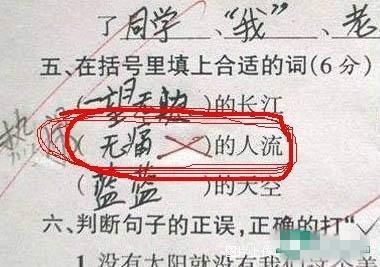 了同学、“我”、老
五、在括号里填上合适的词(6分)
(一望无 )的长江
热
(无痛 )的人流
(蓝蓝 )的天空
六、判断句子的正误,正确的打“√
1.没有太阳就没有我们